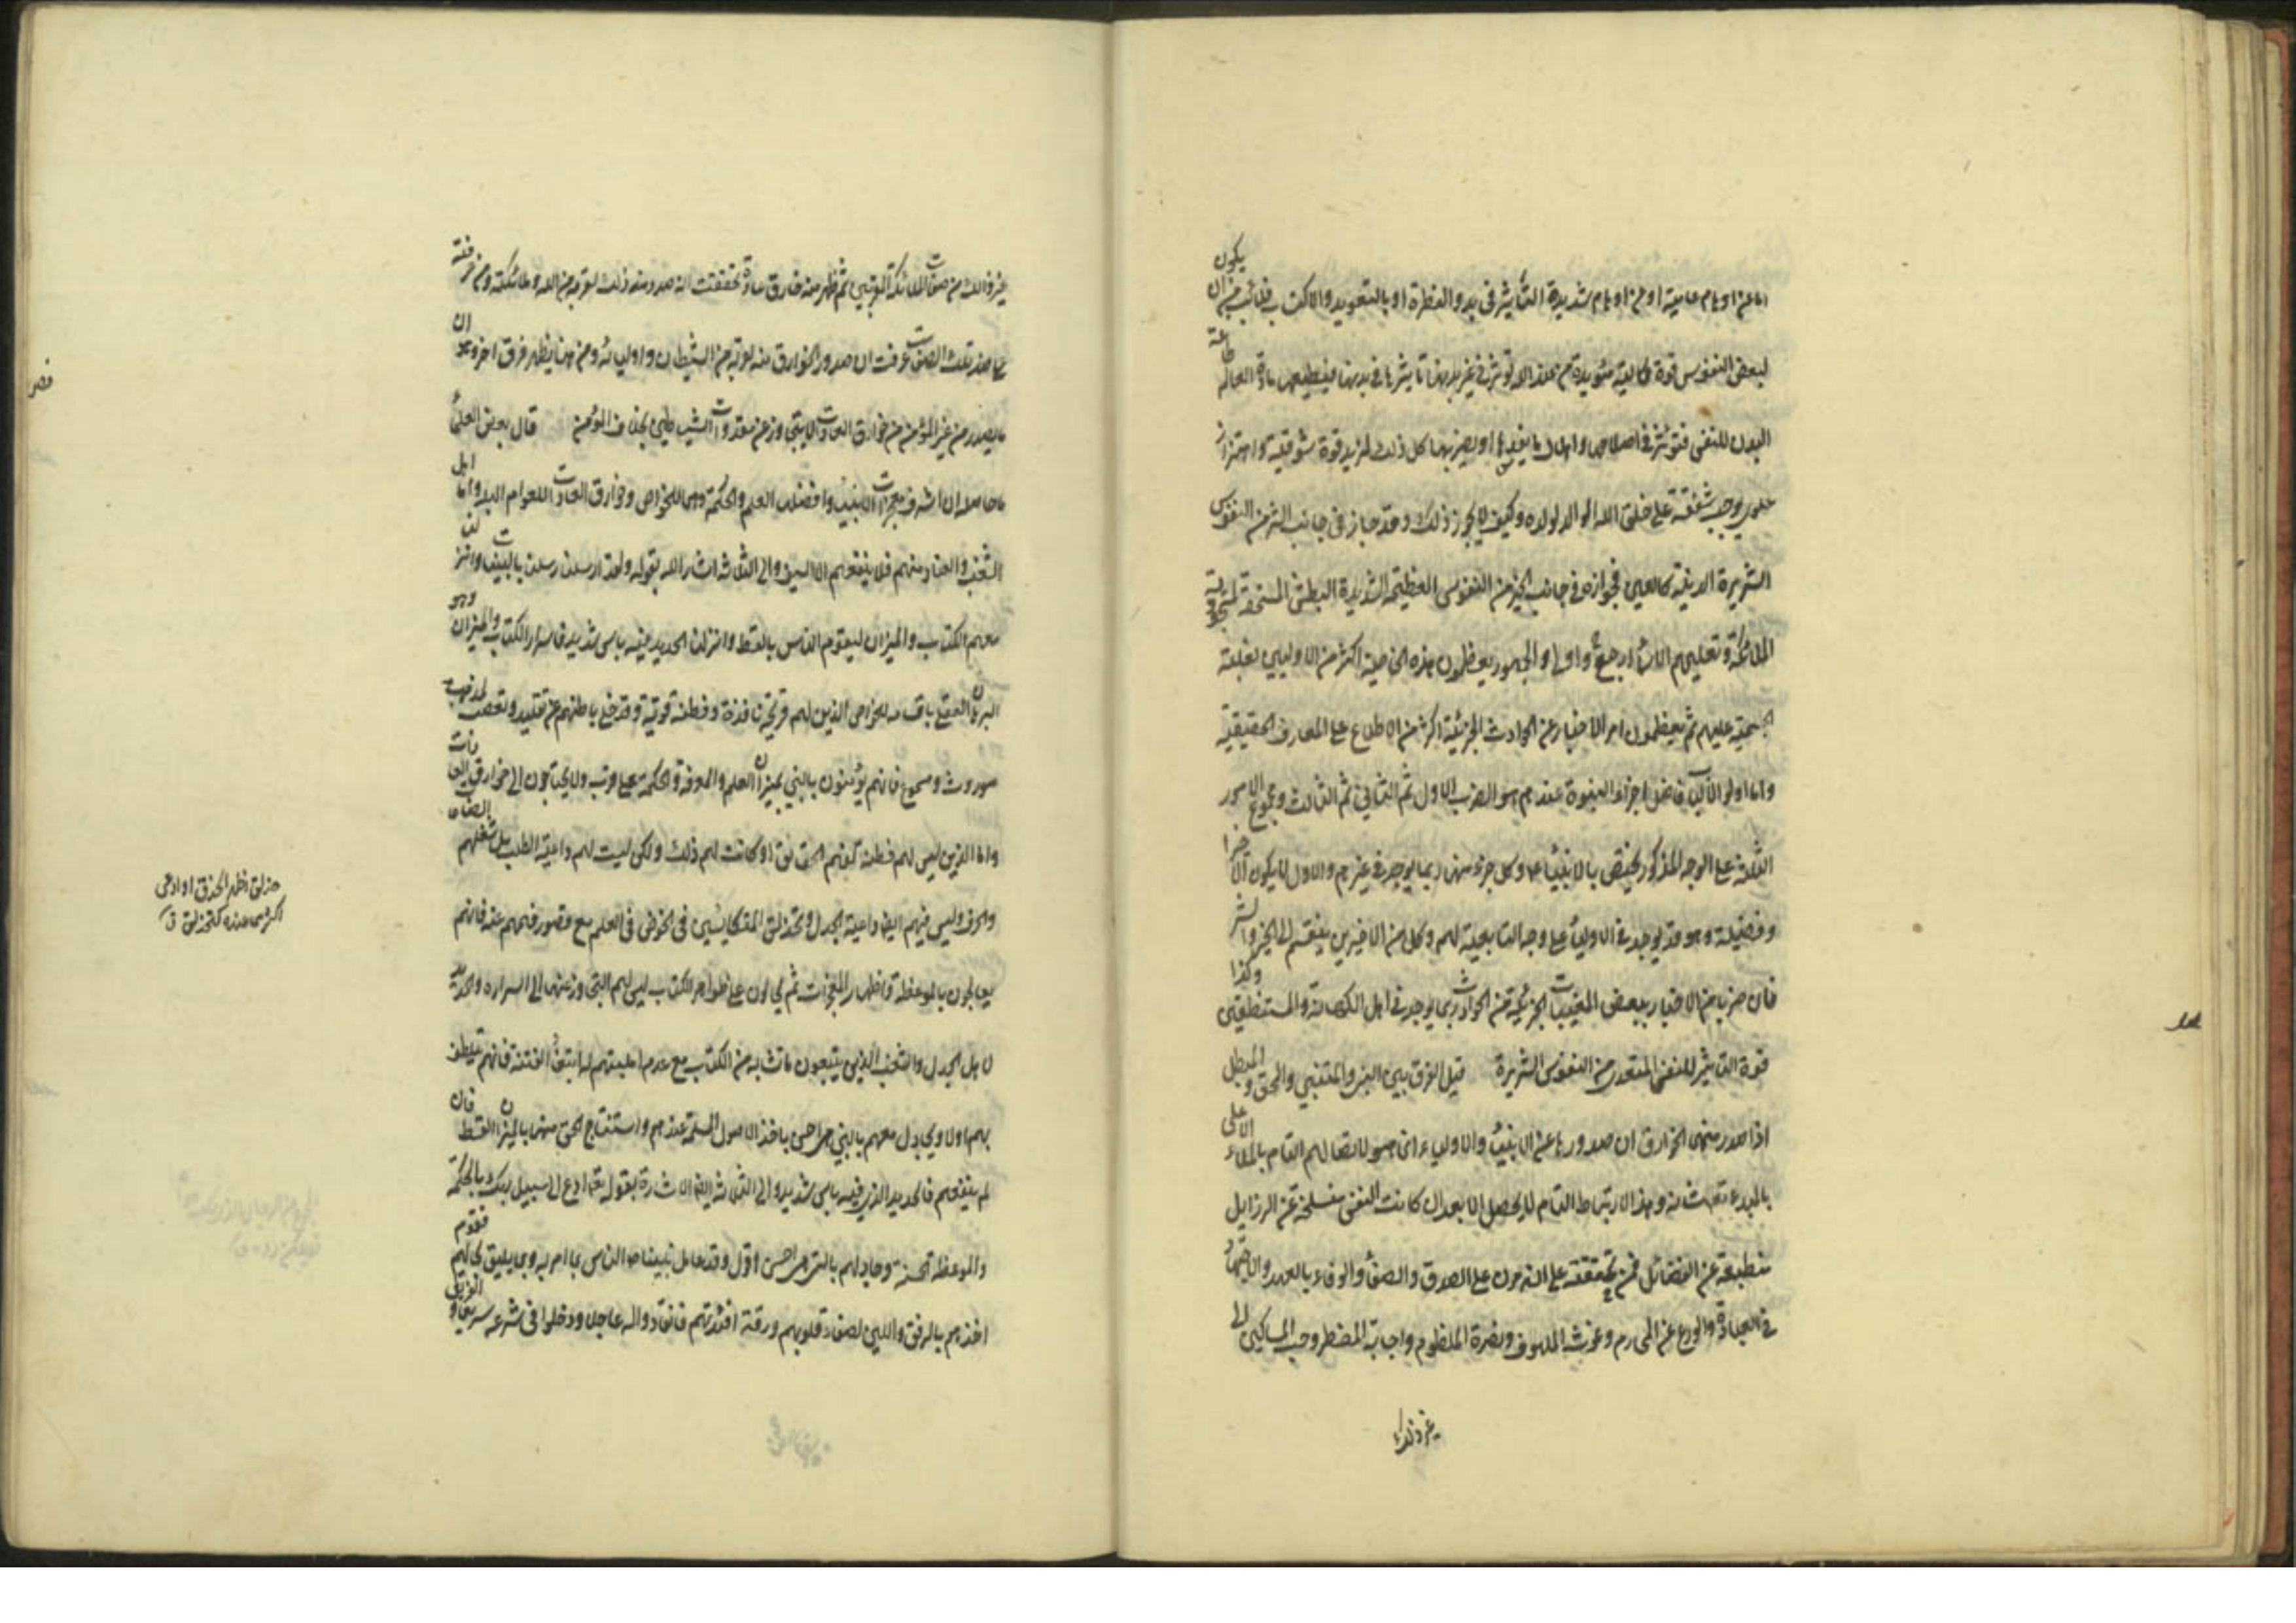 اما عن اوهام عامية او عن اوهام شديدة التأثير في بدو الفطرة او بالتعويد والاكتساب فلا عجب من ان يكون
لبعض النفوس قوة الهية مؤيدة من عند الله تؤثر في غير بدنها تأثيرها في بدنها فيطيعها مادة العالم طاعة
البدن للنفس فتؤثر في اصلاحها واهلاك ما يفسدها او يضر بها كل ذلك لمزيد قوة شوقية واهتزاز
علوي يوجب شفقة على خلق الله الوالد لولده وكيف لا يجوز ذلك وقد جاز في جانب الشر من النفوس
الشريرة الدنية كالعين فجوازه في جانب الخير من النفوس العظيمة الشديدة البطش المستحقة لمسجودية
الملائكة وتعليمهم الاسماء ارجح واولى والجمهور يعظمون هذه الخاصية اكثر من الاوليين لغلبة
الجسمية عليهم ثم يعظمون امر الاخبار عن الحوادث الجزئية اكثر من الاطلاع على المعارف الحقيقية
واما اولو الالباب فافضل اجزاء النبوة عندهم هو الضرب الاول ثم الثاني ثم الثالث ومجموع الامور
الثلثة على الوجه المذكور يختص بالانبياء عا وكل جزء منها ربما يوجد في غيرهم والاول لا يكون الا خيرا
وفضيلة وهو قد يوجد في الاولياء على وجه التابعية لهم وكل من الاخيرين ينقسم الى الخير والشر
فان ضربا من الاخبار ببعض المغيبات الجزئية من الحوادث ربما يوجد في اهل الكهانة والمستنطقين وكذا
قوة التأثير للنفس المتعدي من النفوس الشريرة قيل الفرق بين النبي والمتنبي والمحق والمبطل
اذا صدر منهما الخارق ان صدورها عن الانبياء والاولياء انما هو لاتصالهم التام بالملاء الاعلى
بالمبدء تعالى شانه وهذا الارتباط التام لا يحصل الا بعد ان كانت النفس منسلخة عن الرذايل
منطبعة عن الفضائل فمن تحققته على انه مرن على الصدق والصفاء والوفاء بالعهد والاجتهاد
في العبادة والورع عن المحارم وغوث الملهوف ونصرة المظلوم واجابة المضطر وحب المساكين الى
غير ذلك
غير ذلك من صفات الملائكة المقربين ثم ظهر منه خارق عادة تحققت انه صدر منه ذلك لقربه من الله وملائكته ومن عرفته
على ضد تلك الصفات عرفت ان صدور الخوارق منه لقربه من الشيطان واوليائه ومن هنا يظهر فرق اخر وهو ان
ما يصدر من غير المؤمن من خوارق العادات لا يتجاوز عن مقدورات الشياطين بخلاف المؤمن قال بعض العلماء
ما حاصله ان اشرف معجزات الانبياء وافضلها العلم والحكمة وهى للخواص وخوارق العادات للعوام البله واما اهل
الشغب والعناد منهم فلا ينفعهم الا السيف والى الثلاثة اشار الله بقوله ولقد ارسلنا رسلنا بالبينات وانزلنا
معهم الكتاب والميزان ليقوم الناس بالقسط وانزلنا الحديد فيه باس شديد فاسرار الكتاب والميزان وهو
البرهان العقلي باقسامه للخواص الذين لهم قريحة نافذة وفطنة قوية وقد خلع باطنهم عن تقليد وتعصب لمذهب
موروث ومسموع فانهم يؤمنون بالنبي بميزان العلم والمعرفة والحكمة على قرب ولا يحتاجون الى خوارق العادات
واما الذين ليس لهم فطنة لفهم الحقائق او كانت لهم ذلك ولكن ليست لهم داعية الطلب بل شغلهم الصناعات
والحرف وليس فيهم ايضا داعية الجدل وتحذلق المتكايسين في الخوض في العلم مع قصور فهمهم عنه فانهم
يعالجون بالموعظة واظهار المعجزات ثم يحالون على ظواهر الكتاب ليس لهم التجاوز عنها الى اسراره والحديد
لاهل الجدل والشغب الذين يتبعون ما تشابه من الكتاب مع عدم اهليتهم له ابتغاء الفتنة فانهم تلطف
بهم اولا ويجادل معهم بالتي هي احسن باخذ الاصول المسلمة عندهم واستنتاج الحق منها بالميزان القسط فان
لم ينفعهم فالحديد الذي فيه باس شديد والى الثلاثة ايضا الاشارة بقوله تعالى ادع الى سبيل ربك بالحكمة
والموعظة الحسنة وجادلهم بالتي هي احسن اقول وقد عامل نبينا ص الناس بما امر به وبما يليق بحالهم فقوم
اخذهم بالرفق واللين لصفاء قلوبهم ورقة افئدتهم فانقادوا له عاجلا ودخلوا في شرعه سريعا و
حذلق اظهر الحذق او ادعى
اكثر مما عنده كتحذلق ق